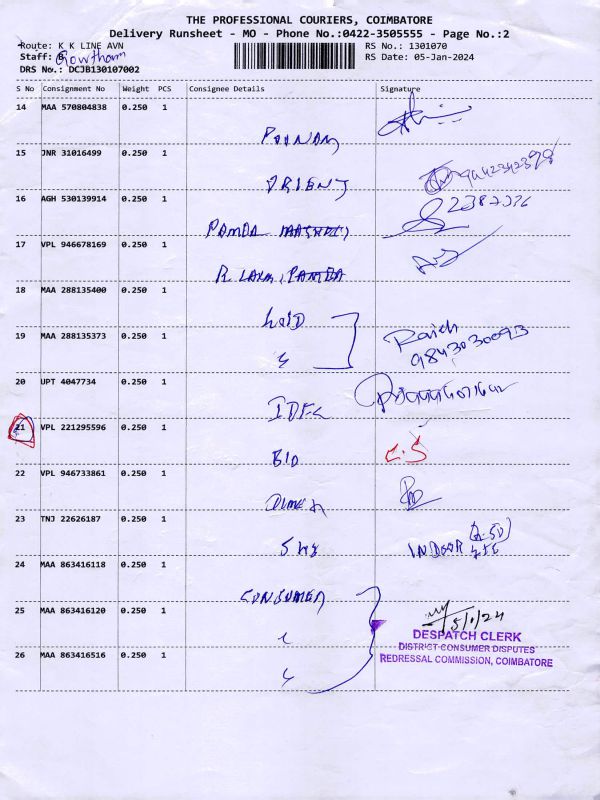 THE PROFESSIONAL COURIERS, COIMBATORE
Delivery Runsheet - MO - Phone No.:0422-3505555 - Page No.:2
Route: K K LINE AVN RS No.: 1301070
Staff: Gowtham RS Date: 05-Jan-2024
DRS No.: DCJB130107002
S No Consignment No Weight PCS Consignee Details Signature
14 MAA 570804838 0.250 1
POONAM
15 JNR 31016499 0.250 1
ORIENT
16 AGH 530139914 0.250 1
PAMBA
17 VPL 946678169 0.250 1
R. LAXMI PAMBA
18 MAA 288135400 0.250 1
19 MAA 288135373 0.250 1
9843030093
20 UPT 4047734 0.250 1
21 VPL 221295596 0.250 1
C.S
22 VPL 946733861 0.250 1
23 TNJ 22626187 0.250 1
INDOOR
24 MAA 863416118 0.250 1
CONSUMER
25 MAA 863416120 0.250 1
5/1/24
DESPATCH CLERK
DISTRICT CONSUMER DISPUTES
26 MAA 863416516 0.250 1
REDRESSAL COMMISSION, COIMBATORE